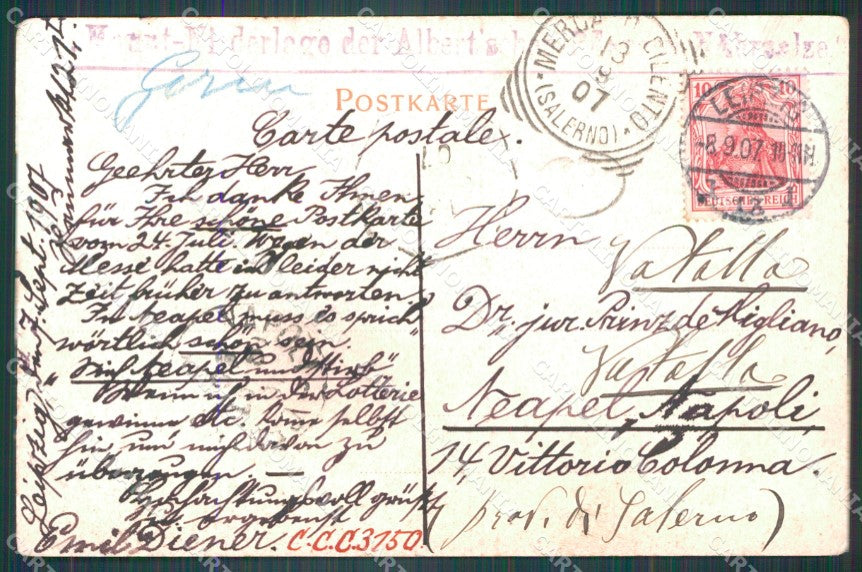 Haupt-Niederlage der Albert'schen
Nährsalze
POSTKARTE
Carte postale.
Geehrter Herr
Ich danke Ihnen
für Ihre schöne Postkarte
vom 24. Juli. Wegen der
Messe hatte ich leider nicht
Zeit früher zu antworten.
In Neapel muss es sprich
wörtlich schön sein.
"Sieh Neapel und stirb"
Wenn ich in der Lotterie
gewinne etc. komme selbst
hin um mich davon zu
überzeugen. —
Hochachtungsvoll grüßt
ergebenst
Emil Diener. C.C.C. 3750.
Leipzig, 7. Sept. 1907
MERCATO CILENTO
13
9
07
(SALERNO)
10 10
DEUTSCHES REICH
LEIPZIG
-8.9.07
Herrn
Vatolla
Dr. jur. Prinz de Migliano,
Vatolla
Neapel, Napoli,
14, Vittorio Colonna.
(prov. di Salerno)
CARTOLINOMANIA